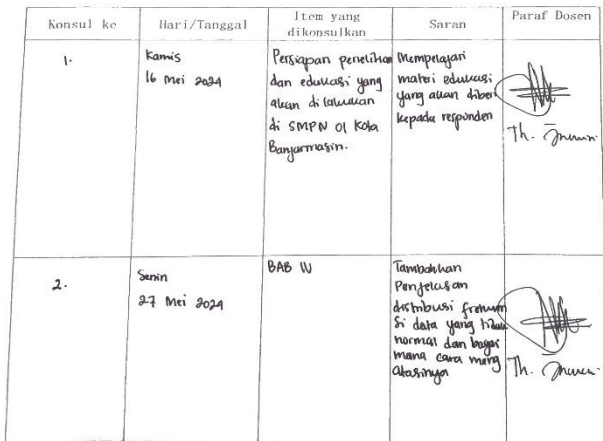 Konsul ke Hari/Tanggal Item yang dikonsulkan Saran Paraf Dosen
1.
Kamis
16 Mei 2024
Persiapan penelitian
dan edukasi yang
akan di lakukan
di SMPN 01 Kota
Banjarmasin.
Mempelajari
materi edukasi
yang akan diberi
kepada responden
Th.
2.
Senin
27 Mei 2024
BAB IV
Tambahkan
Penjelasan
distribusi frekuen
si data yang tidak
normal dan bagai
mana cara meng
atasinya
Th.